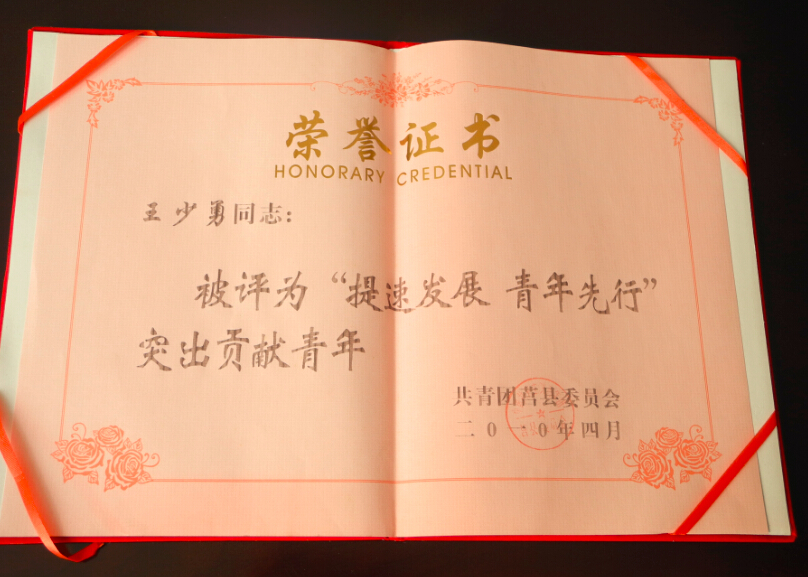 荣誉证书
HONORARY CREDENTIAL
王少勇同志：
被评为“提速发展 青年先行”
突出贡献青年
共青团莒县委员会
二０一０年四月